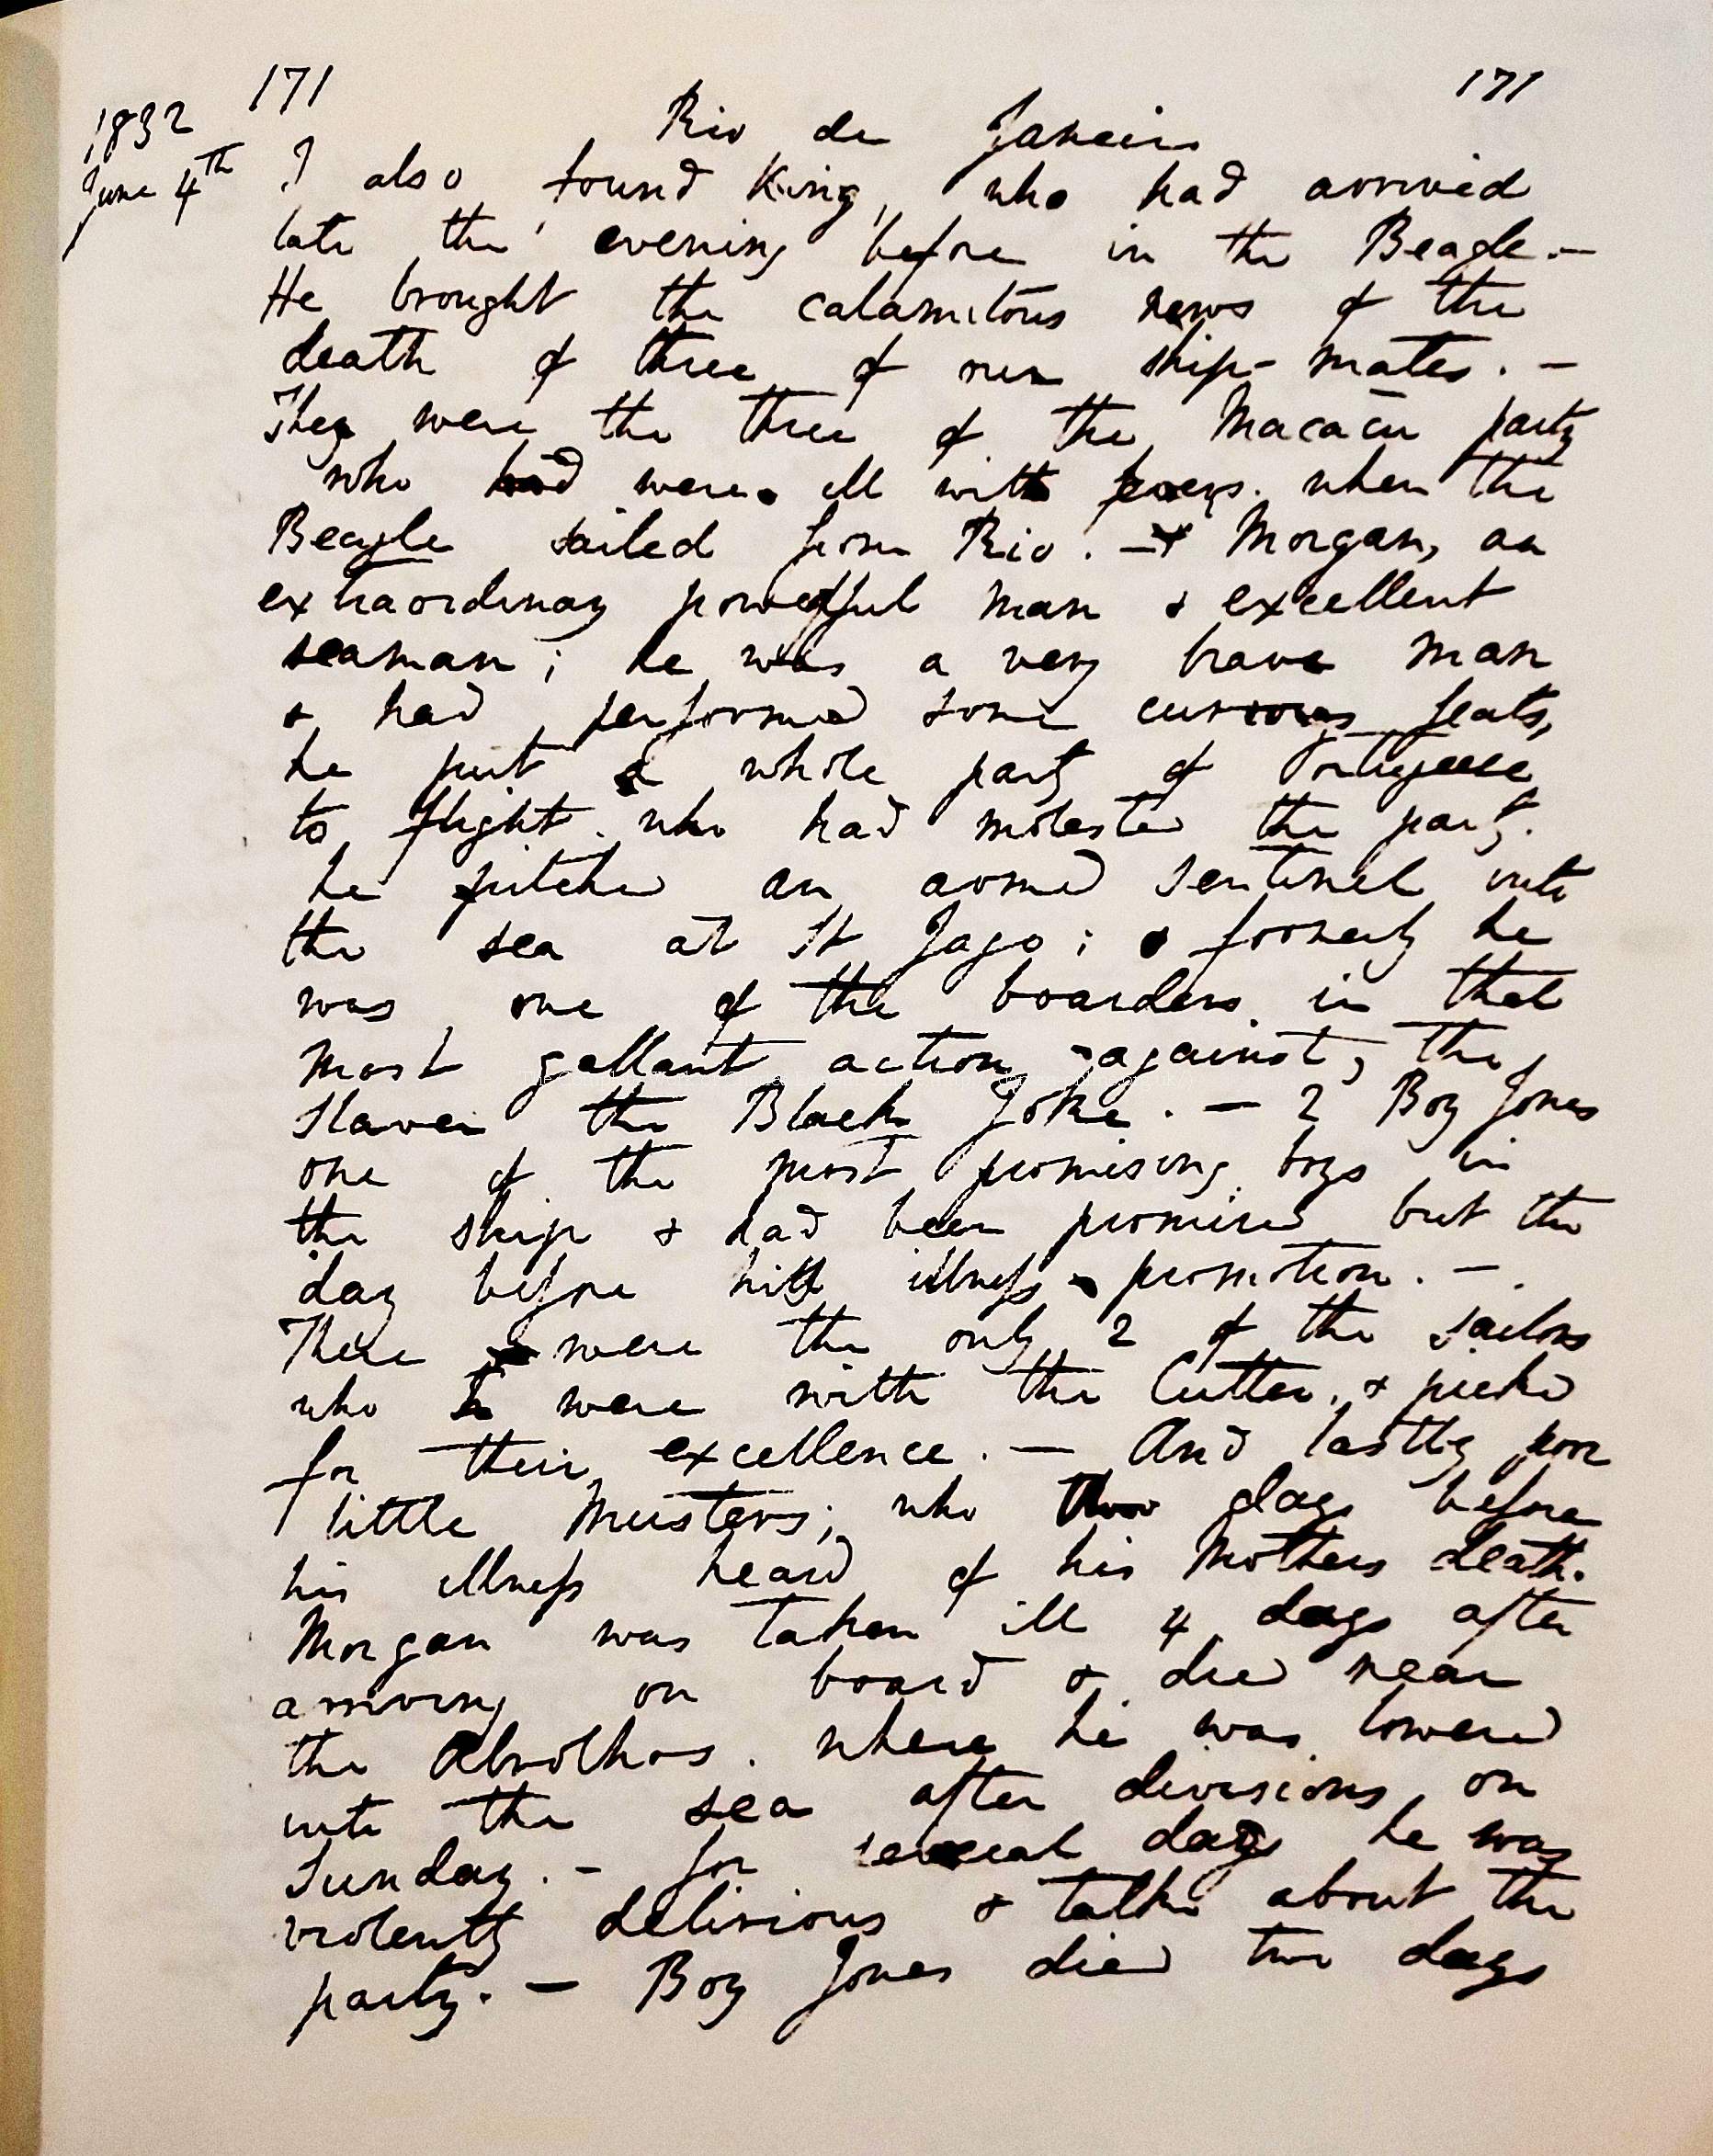 171 171
1832
Rio de Janeiro
June 4th I also found King, who had arrived
late the evening before in the Beagle. —
He brought the calamitous news of the
death of three of our ship-mates. —
They were the three of the Macacu party
who had were ill with fevers when the
Beagle sailed from Rio. — 1 Morgan, an
extraordinary powerful man & excellent
seaman; he was a very brave man
& had performed some curious feats,
he put a whole party of Portugeese
to flight who had molested the party.
he pitched an armed sentinel into
the sea at St Jago; & formerly he
was one of the boarders in that
most gallant action against, the
Slaver the Black Joke. — 2 Boy Jones
one of the most promising boys in
the ship & had been promised but the
day before his illness promotion. —.
These were the only 2 of the sailors
who were with the Cutter, & picked
for their excellence. — And lastly poor
little Musters; who three days before
his illness heard of his Mothers death.
Morgan was taken ill 4 days after
arriving on board & died near
the Abrolhos. where he was lowered
into the sea after divisions on
Sunday. — for several days he was
violently delirious & talked about the
party. — Boy Jones died two days